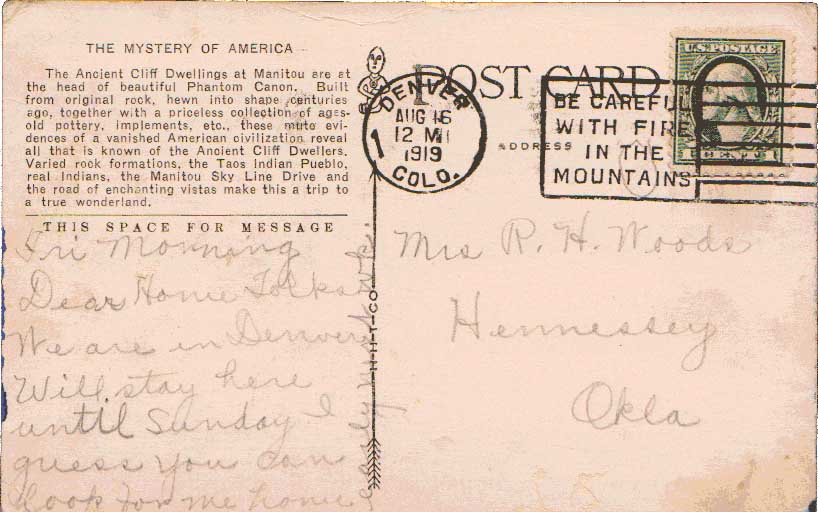 THE MYSTERY OF AMERICA
The Ancient Cliff Dwellings at Manitou are at
the head of beautiful Phantom Canon. Built
from original rock, hewn into shape centuries
ago, together with a priceless collection of ages-
old pottery, implements, etc., these mute evi-
dences of a vanished American civilization reveal
all that is known of the Ancient Cliff Dwellers.
Varied rock formations, the Taos Indian Pueblo,
real Indians, the Manitou Sky Line Drive and
the road of enchanting vistas make this a trip to
a true wonderland.
THIS SPACE FOR MESSAGE
Fri Morning
Dear Home Folks
We are in Denver
Will stay here
until Sunday I
guess you can
look for me home
early next wk.
H-H-T-CO
POST CARD
ADDRESS
DENVER
AUG 16
12 M
1919
COLO.
1
BE CAREFUL
WITH FIRE
IN THE
MOUNTAINS
U.S. POSTAGE
CENT
Mrs R. H. Woods
Hennessey
Okla